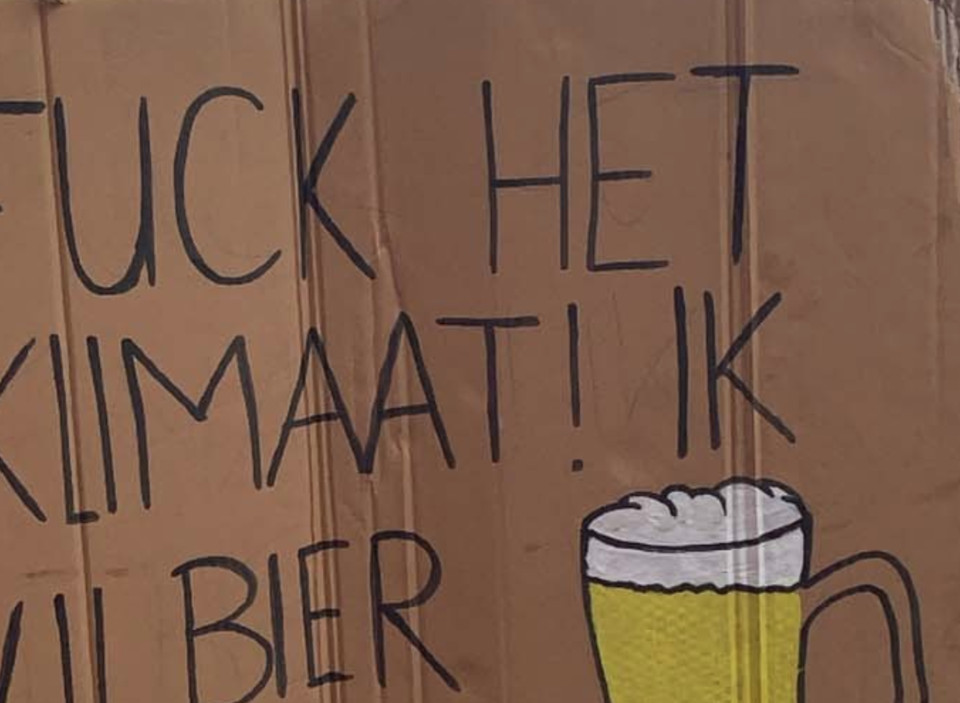 FUCK HET
KLIMAAT! IK
WIL BIER